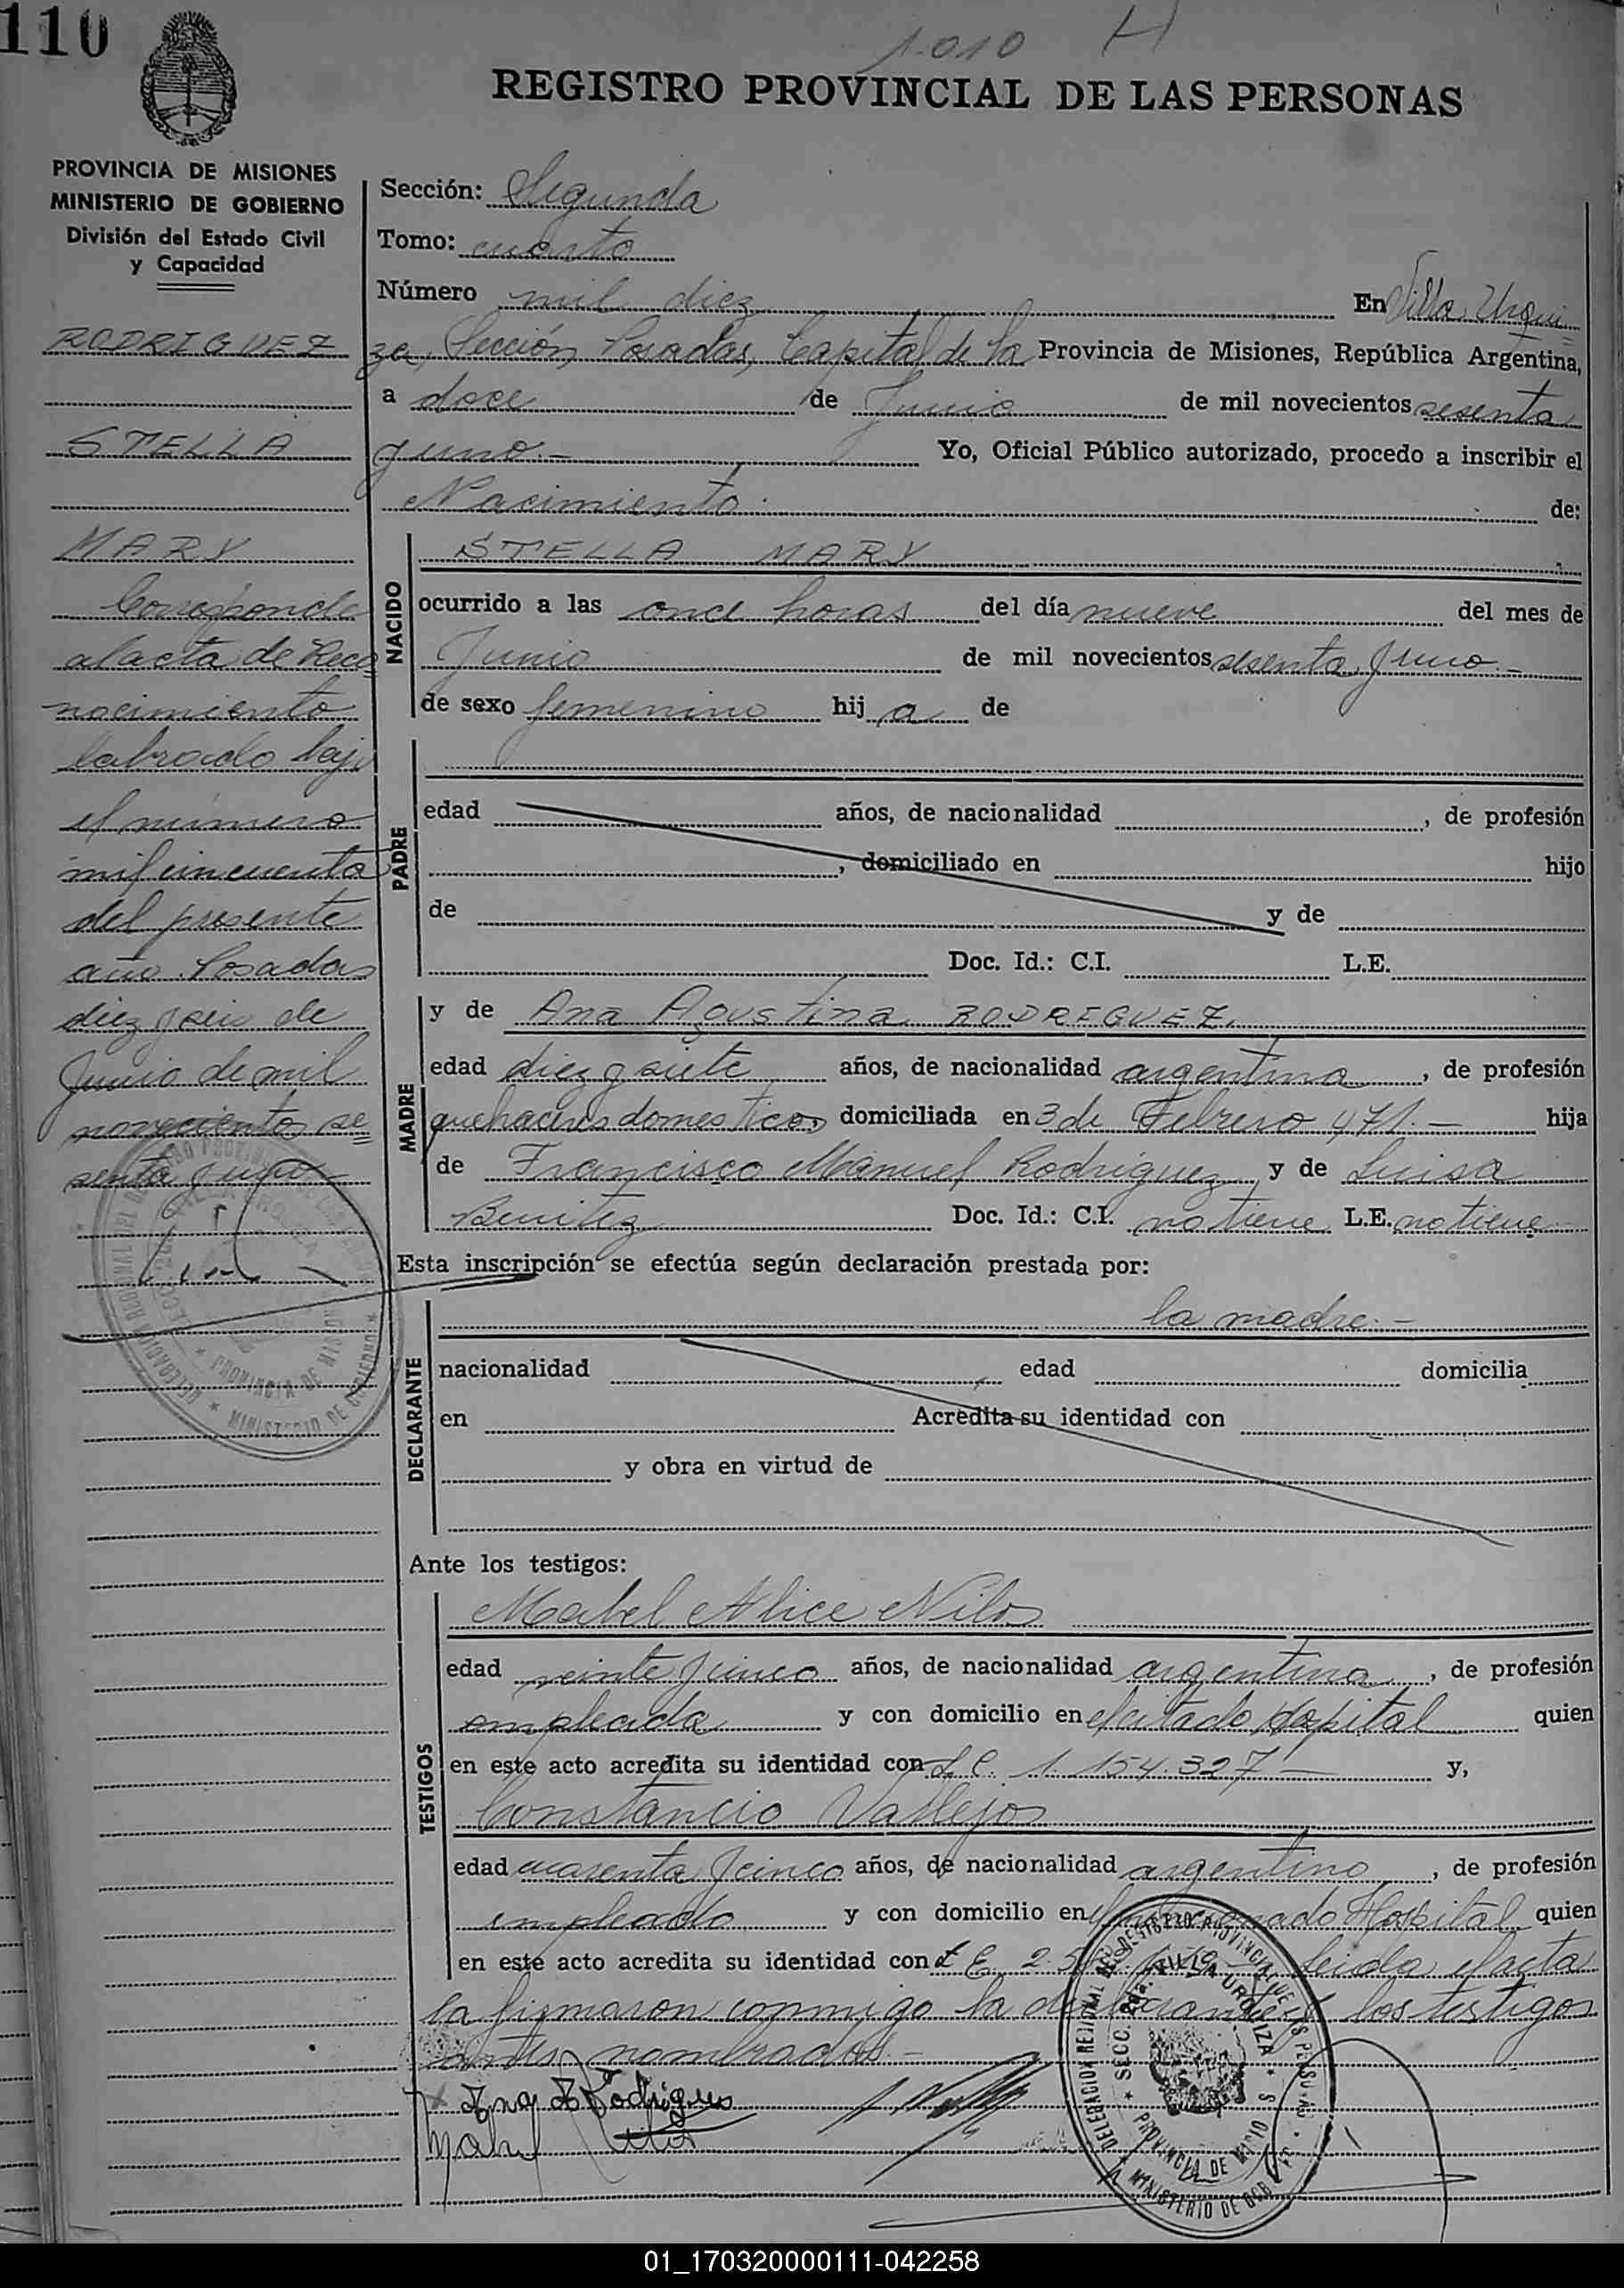 110
1.010 H
REGISTRO PROVINCIAL DE LAS PERSONAS
PROVINCIA DE MISIONES
MINISTERIO DE GOBIERNO
División del Estado Civil
y Capacidad
RODRIGUEZ
STELLA
MARY
Corresponde
al acta de Reco
nocimiento
labrado bajo
el número
mil cincuenta
del presente
año. Posadas
diez y seis de
Junio de mil
novecientos se
senta y uno
Sección: Segunda
Tomo: cuarto
Número mil diez En Villa Urqui
za, Sección Posadas, Capital de la Provincia de Misiones, República Argentina,
a doce de Junio de mil novecientos sesenta
y uno.- Yo, Oficial Público autorizado, procedo a inscribir el
Nacimiento de:
NACIDO
STELLA MARY
ocurrido a las once horas del día nueve del mes de
Junio de mil novecientos sesenta y uno.-
de sexo femenino hij a de
PADRE
edad años, de nacionalidad , de profesión
, domiciliado en hijo
de y de
Doc. Id.: C.I. L.E.
MADRE
y de Ana Agustina RODRIGUEZ.
edad diez y siete años, de nacionalidad argentina , de profesión
quehaceres domesticos domiciliada en 3 de Febrero 471.- hija
de Francisco Manuel Rodriguez y de Luisa
Benitez Doc. Id.: C.I. no tiene L.E. no tiene
Esta inscripción se efectúa según declaración prestada por:
DECLARANTE
la madre.-
nacionalidad edad domicilia
en Acredita su identidad con
y obra en virtud de
Ante los testigos:
TESTIGOS
Mabel Alice Nilos
edad veinte y cinco años, de nacionalidad argentina , de profesión
empleada y con domicilio en el citado Hospital quien
en este acto acredita su identidad con L C. 1.154.327 - y,
Constancio Vallejos
edad cuarenta y cinco años, de nacionalidad argentino , de profesión
empleado y con domicilio en Hospital quien
en este acto acredita su identidad con L E 2. Leida el acta
la firmaron conmigo la declarante y los testigos
antes nombrados.-
Ana A Rodrigues
DELEGACION REGIONAL DEL REGISTRO PROVINCIAL DE LAS PERSONAS
SECC. 2da. VILLA URQUIZA
PROVINCIA DE MISIONES
MINISTERIO DE GOBIERNO
01_170320000111-042258